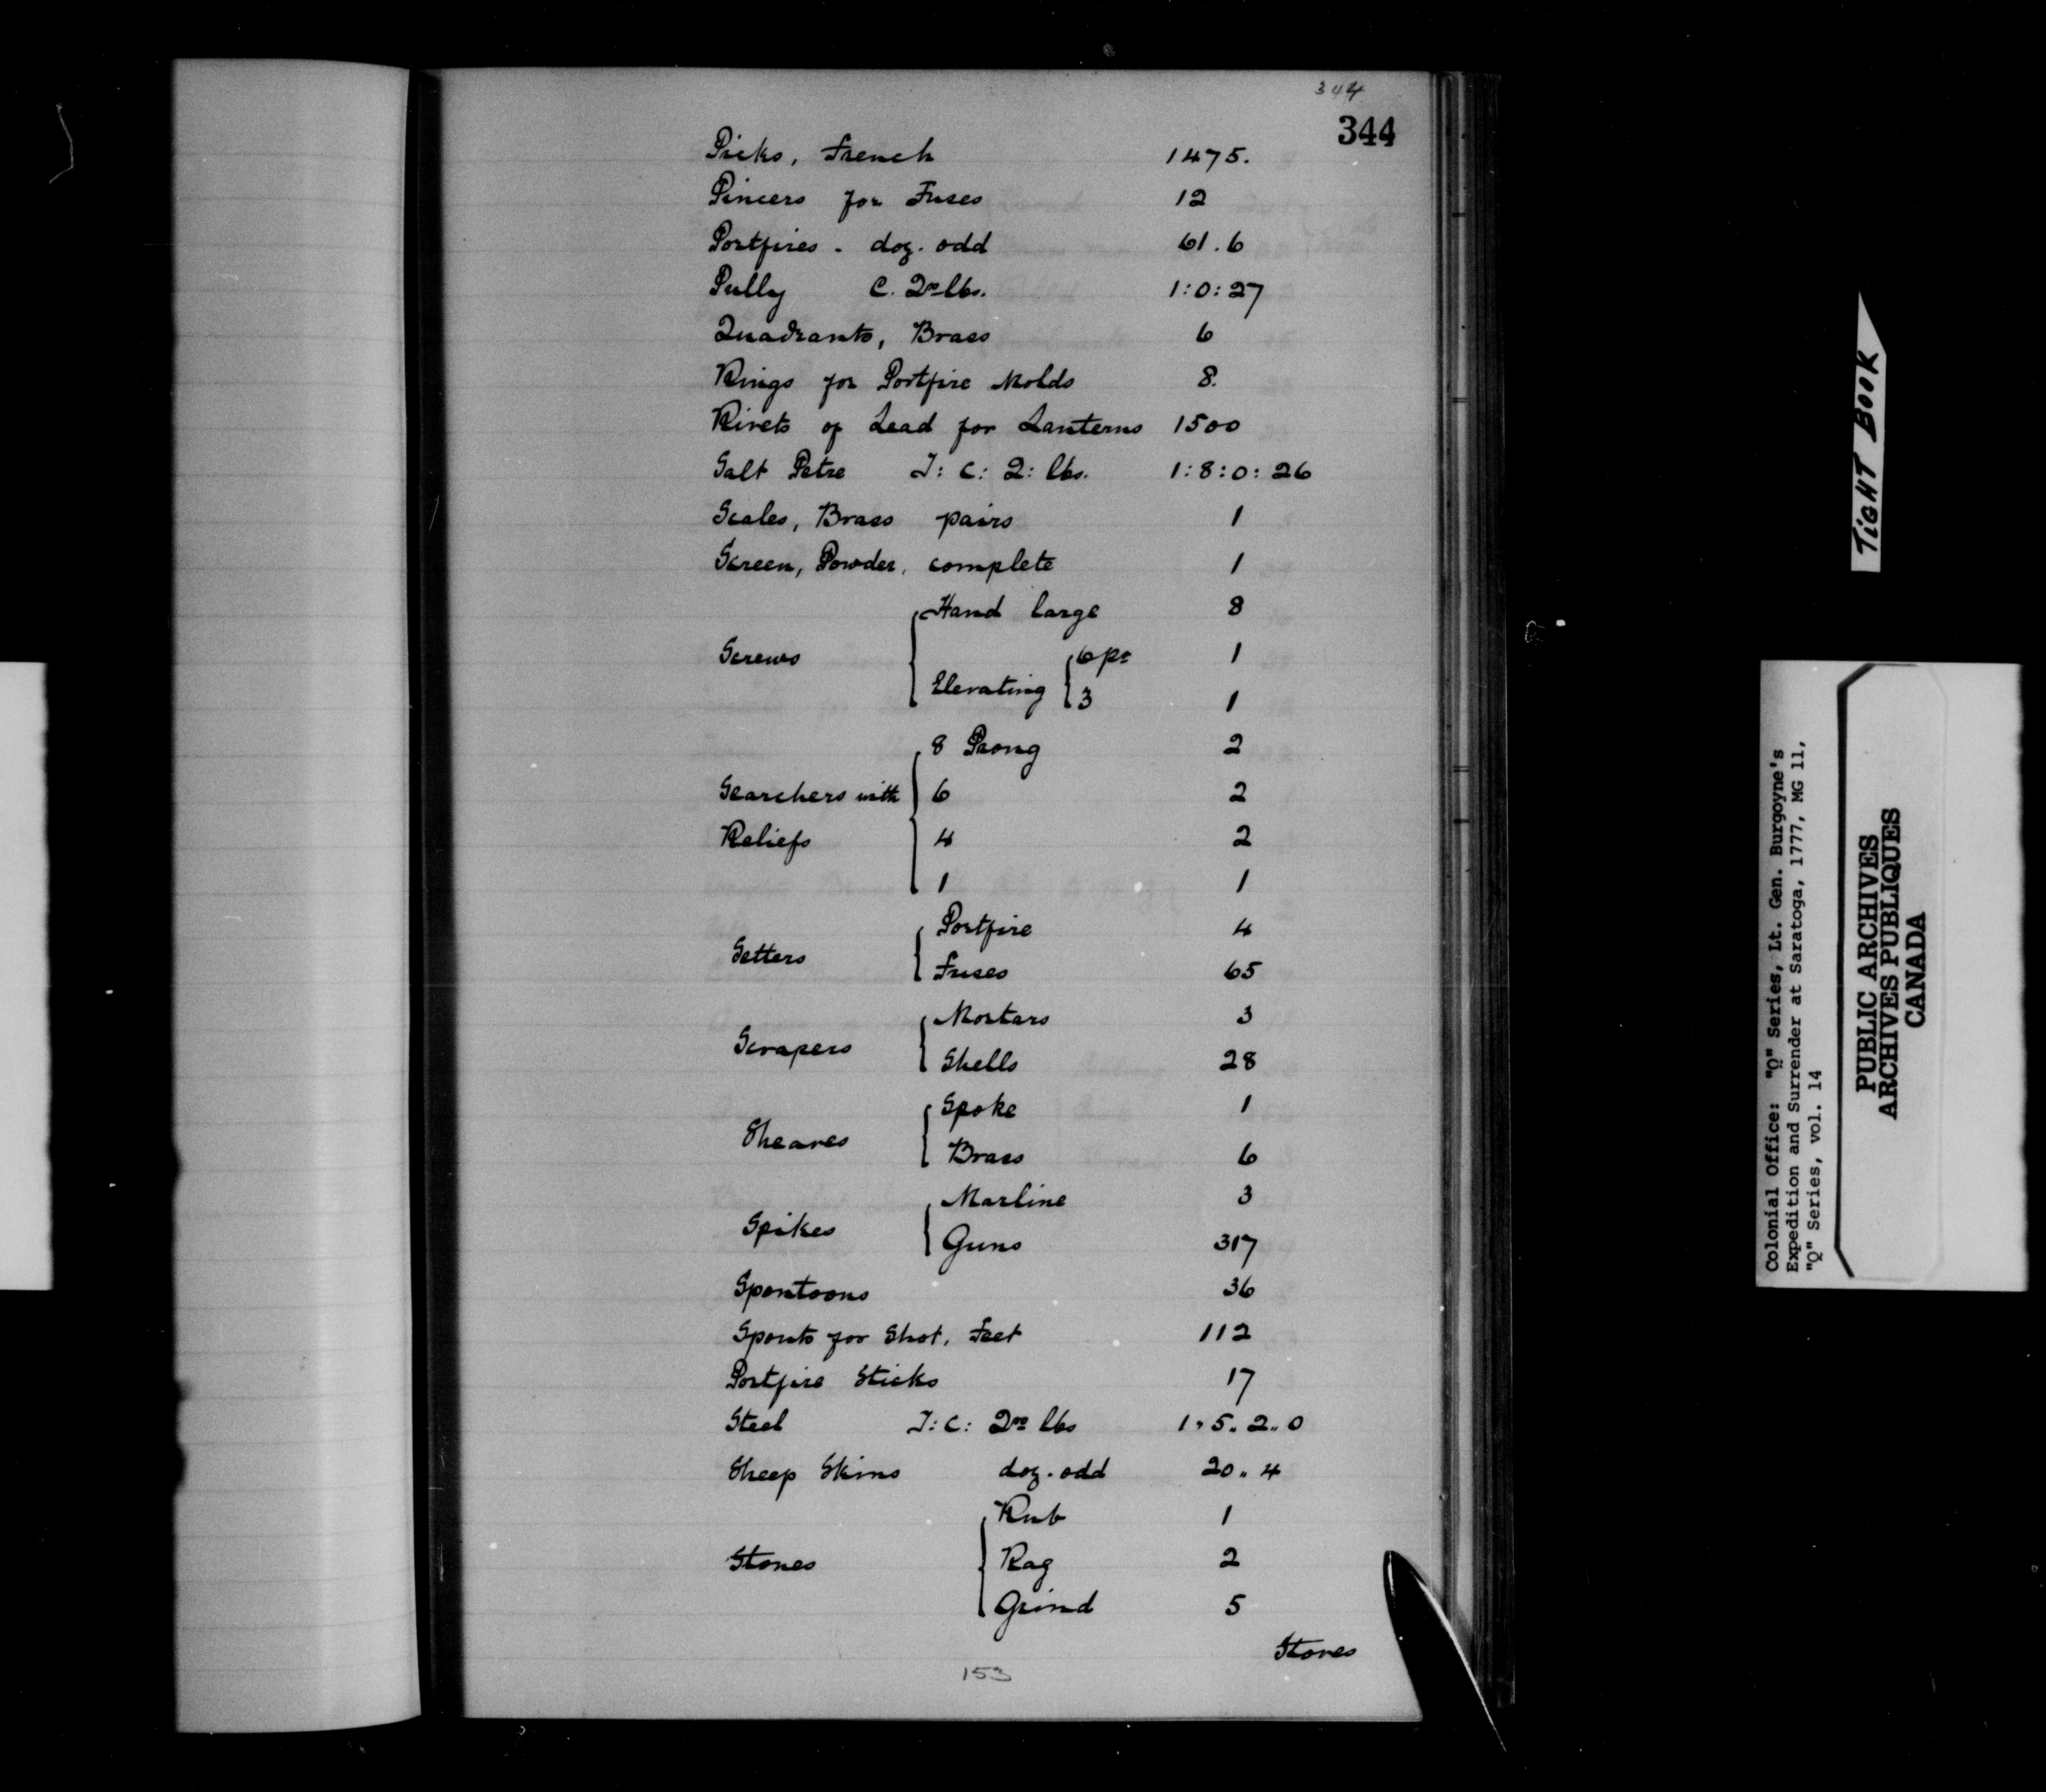 344
344
Picks, French 1475.
Pincers for Fuses 12
Portfires - doz. odd 61.6
Pully C. Qrs lbs. 1:0:27
Quadrants, Brass 6
Rings for Portfire Molds 8.
Rivets of Lead for Lanterns 1500
Salt Petre T: C: Q: lbs. 1:8:0:26
Scales, Brass pairs 1
Screen, Powder, complete 1
Hand large 8
Screws 6 pr 1
Elevating 3 1
8 Prong 2
Searchers with 6 2
Reliefs 4 2
1 1
Portfire 4
Setters
Fuses 65
Mortars 3
Scrapers
Shells 28
Spoke 1
Sheaves
Brass 6
Marline 3
Spikes
Guns 317
Spontoons 36
Spouts for Shot, Feet 112
Portfire Sticks 17
Steel T: C: Qrs lbs 1.5.2.0
Sheep Skins doz. odd 20.4
Rub 1
Stones Rag 2
Grind 5
Stores
153
TIGHT BOOK
Colonial Office: "Q" Series, Lt. Gen. Burgoyne's
Expedition and Surrender at Saratoga, 1777, MG 11,
"Q" Series, vol. 14
PUBLIC ARCHIVES
ARCHIVES PUBLIQUES
CANADA